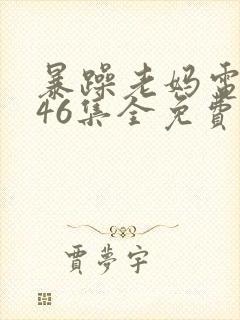 暴躁老妈電
46集全免費
賈夢宇